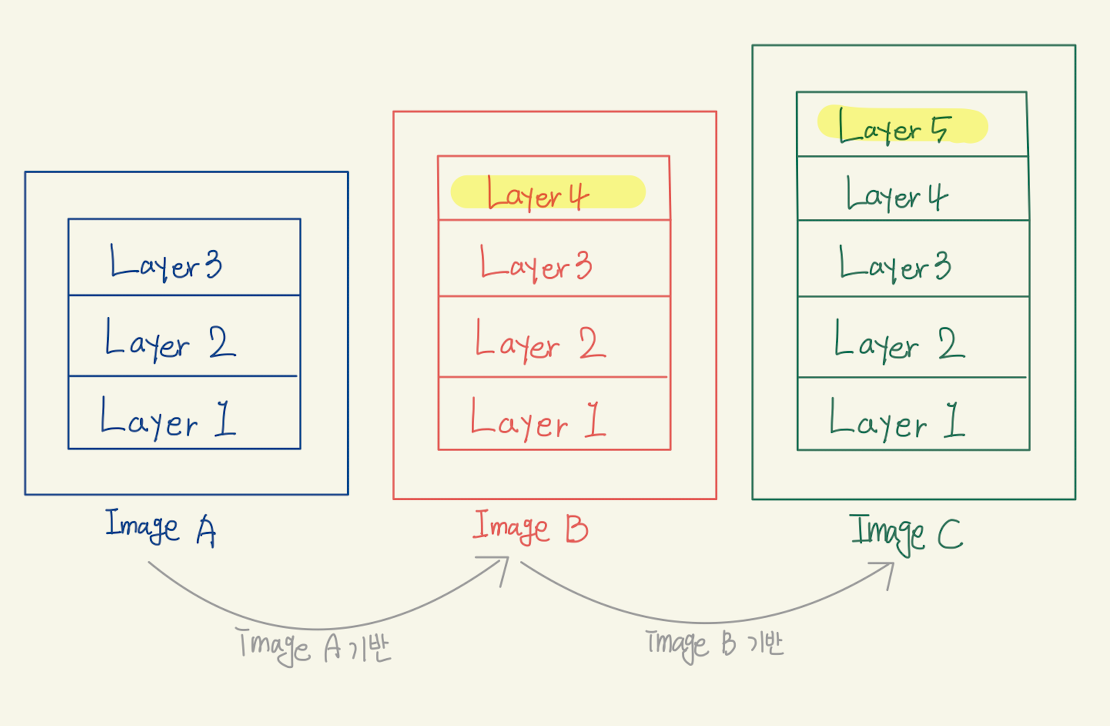 Layer 3
Layer 2
Layer 1
Image A
Layer 4
Layer 3
Layer 2
Layer 1
Image B
Layer 5
Layer 4
Layer 3
Layer 2
Layer 1
Image C
Image A 기반
Image B 기반